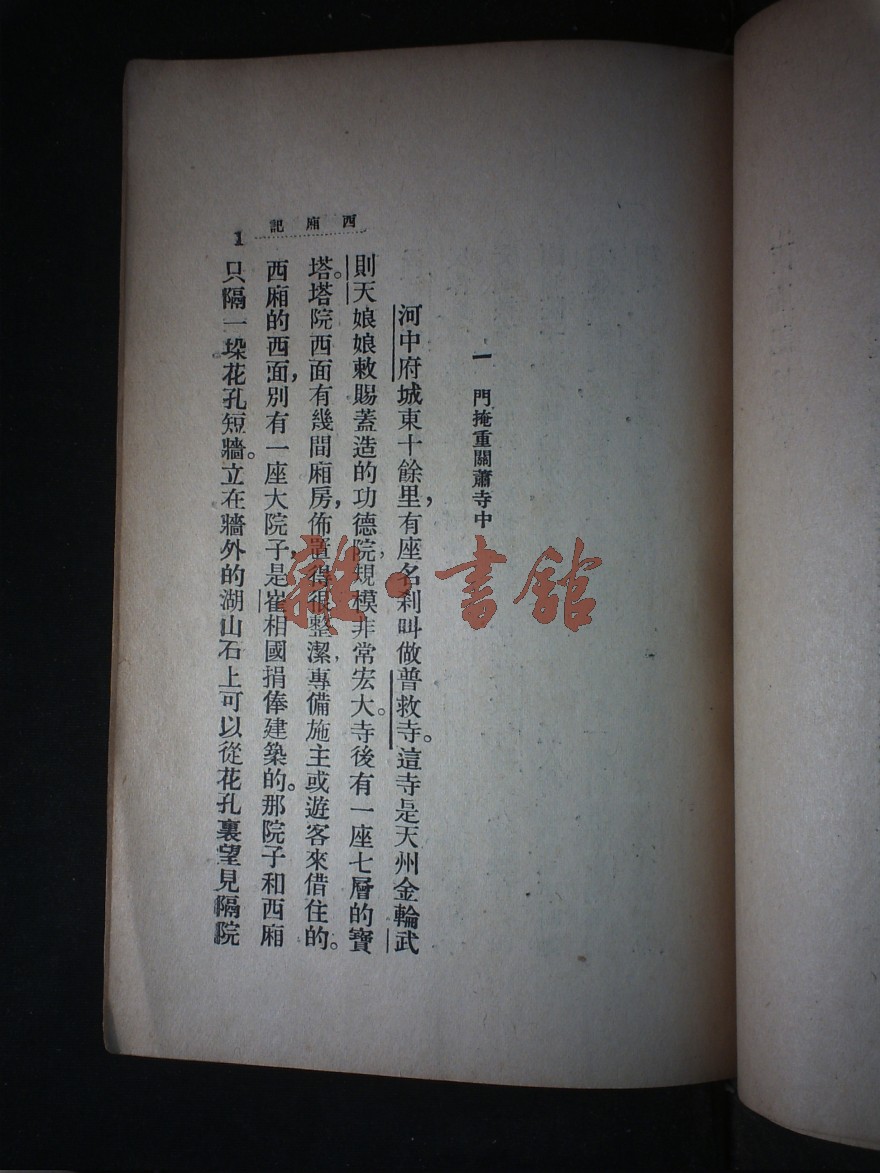 一　門掩重關蕭寺中
河中府城東十餘里，有座名刹叫做普救寺。這寺是天州金輪武
則天娘娘敕賜蓋造的功德院，規模非常宏大。寺後有一座七層的寶
塔。塔院西面有幾間廂房，佈置得很整潔，專備施主或遊客來借住的。
西廂的西面，別有一座大院子，是崔相國捐俸建築的。那院子和西廂
只隔一垛花孔短牆。立在牆外的湖山石上可以從花孔裏望見隔院
西廂記
1
雜·書館